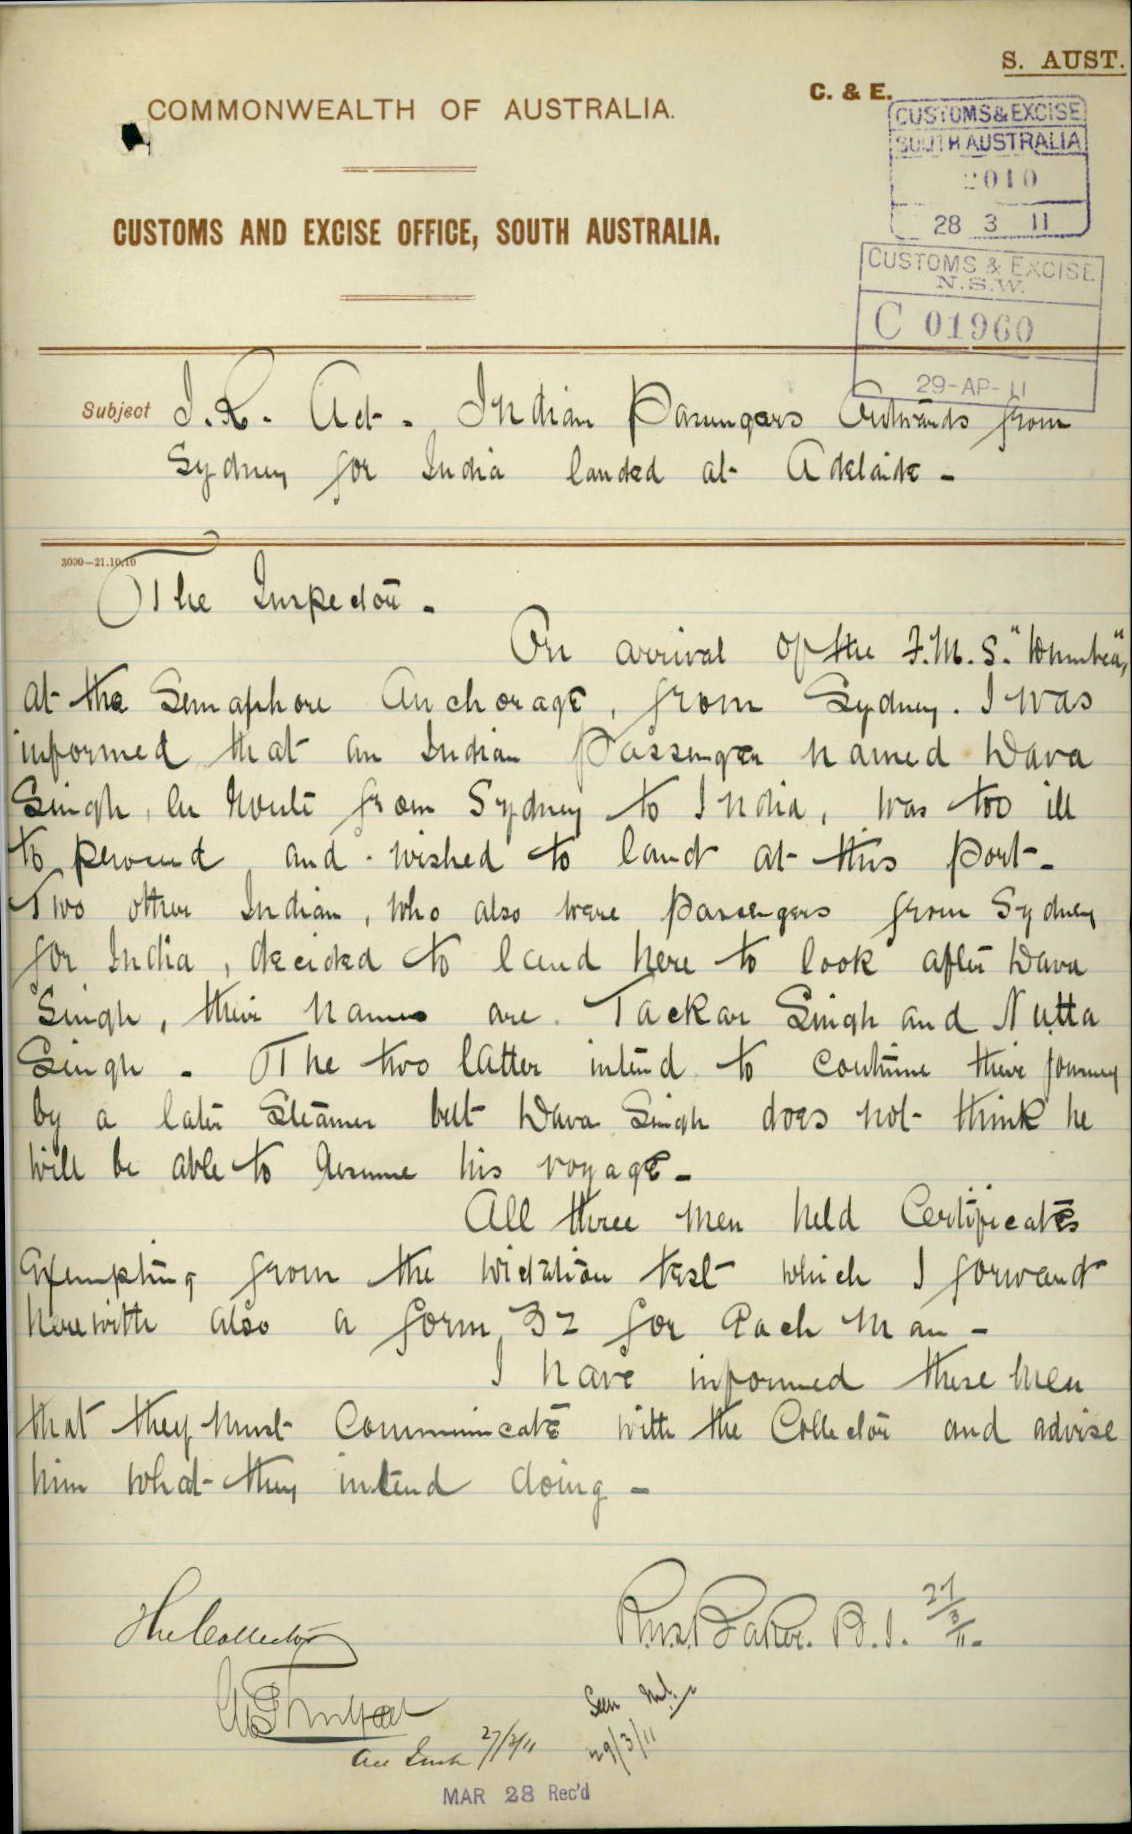 S. AUST.
C. & E.
COMMONWEALTH OF AUSTRALIA.
CUSTOMS & EXCISE
SOUTH AUSTRALIA
2010
28 3 11
CUSTOMS AND EXCISE OFFICE, SOUTH AUSTRALIA.
CUSTOMS & EXCISE
N.S.W.
C 01960
29-AP-11
Subject I.R. Act. Indian Passengers Outwards from
Sydney for India landed at Adelaide -
3000—21.10.10
The Inspector.
On arrival of the F.M.S.
at the Semaphore Anchorage, from Sydney. I was
informed that an Indian Passenger named Wava
Singh, en route from Sydney to India, was too ill
to proceed and wished to land at this Port-
Two other Indian, who also were passengers from Sydney
for India, decided to land here to look after Wava
Singh, their names are Tackar Singh and Nutta
Singh - The two latter intend to continue their journey
by a later Steamer but Wava Singh does not think he
will be able to resume his voyage -
All three men held Certificates
Exempting from the dictation test which I forward
herewith also a form 32 for each man -
I have informed these men
that they must communicate with the Collector and advise
him what they intend doing -
The Collector
Baker. B.I. 27/3/11.
27/3/11
Seen
29/3/11
MAR 28 Rec'd